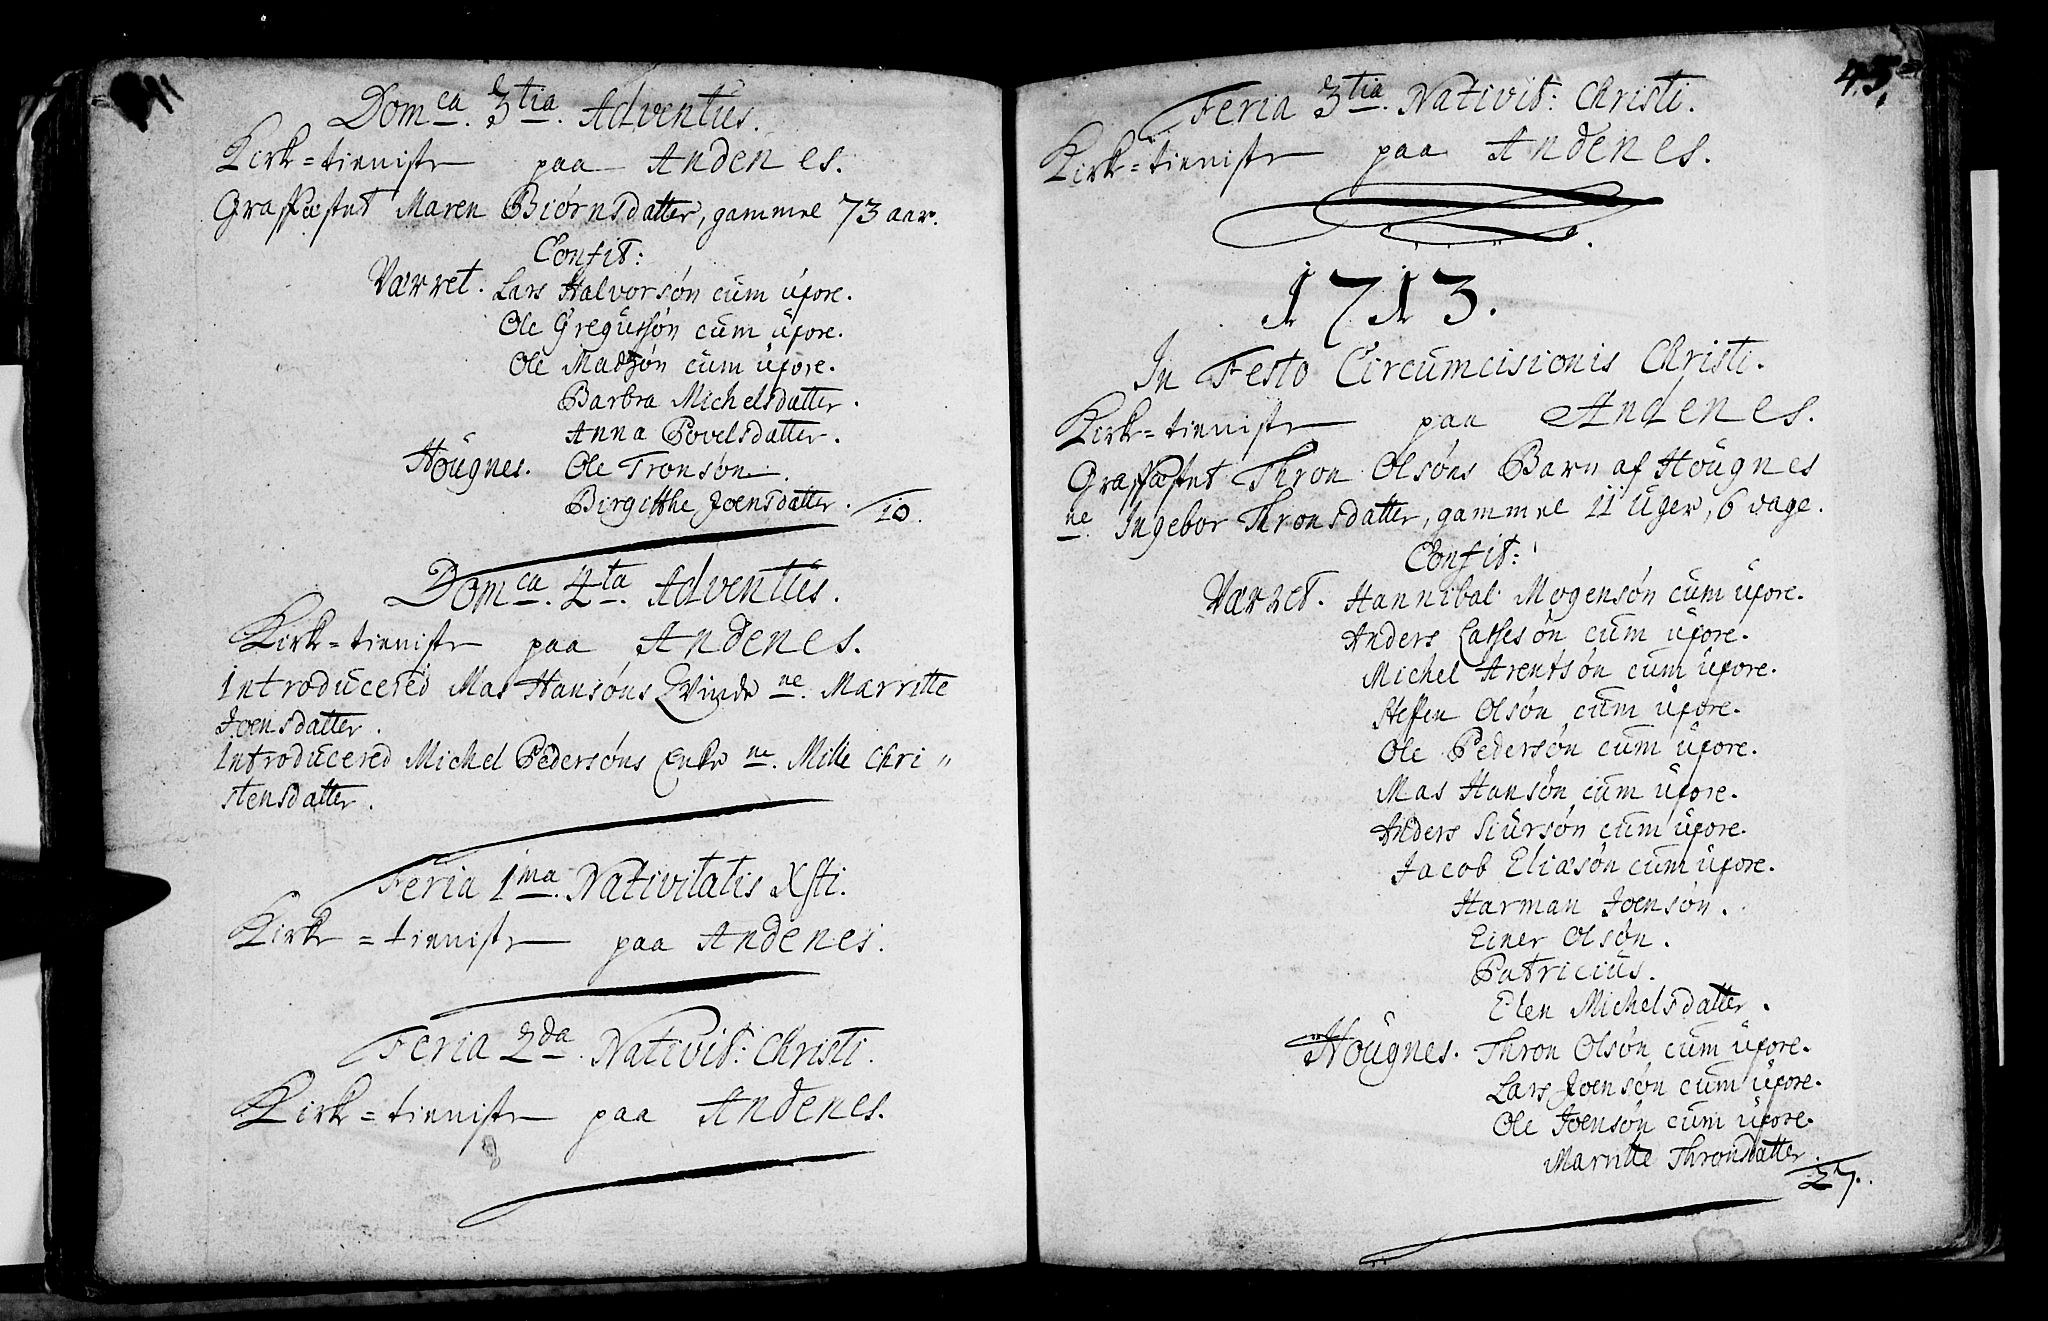 Dom<sup>ca</sup>. 3<sup>tia</sup>. Adventüs.
Kirke=tieniste paa Andenes.
Graffæstet Maren Biørnsdatter, gammel 73 aar.
Confit:
Værret. Lars Halvorsøn cum üxore.
Ole Gregüssøn cum üxore.
Ole Madzøn cum üxore.
Barbra Michelsdatter.
Anna Povelsdatter.
Höugnes. Ole Tronsøn.
Birgitthe Joensdatter. 10.
Dom<sup>ca</sup>. 4<sup>ta</sup>. Adventüs.
Kirke=tieniste paa Andenes.
Introducered Mas Hansøns Qvinde ne. Marritte
Joensdatter.
Introducered Michel Pedersøns Enke ne. Mille Chri„
stensdatter.
Feria 1<sup>ma</sup>. Nativitatis Xsti.
Kirke=tieniste paa Andenes.
Feria 2<sup>da</sup>. Nativit: Christi.
Kirke=tieniste paa Andenes.
45.
Feria 3<sup>tia</sup>. Nativit: Christi.
Kirke=tieniste paa Andenes.
1713.
In Festo Circumcisionis Christi.
Kirke=tieniste paa Andenes.
Graffæstet Thron Olsøns Barn af Höugnes
ne. Ingebor Thronsdatter, gammel 11 Uger, 6 dage.
Confit:
Værret. Hannibal Mogensøn cum üxore.
Anders Lassesøn cum üxore.
Michel Arentsøn cum üxore.
Steffen Olsøn cum üxore.
Ole Pedersøn cum üxore.
Mas Hansøn cum üxore.
Anders Siursøn cum üxore.
Jacob Eliæsøn cum üxore.
Harman Joensøn.
Einer Olsøn.
Patricius.
Elen Michelsdatter.
Höugnes. Thron Olsøn cum üxore.
Lars Joensøn cum üxore.
Ole Joensøn cum üxore.
Marritte Thronsdatter.
27.